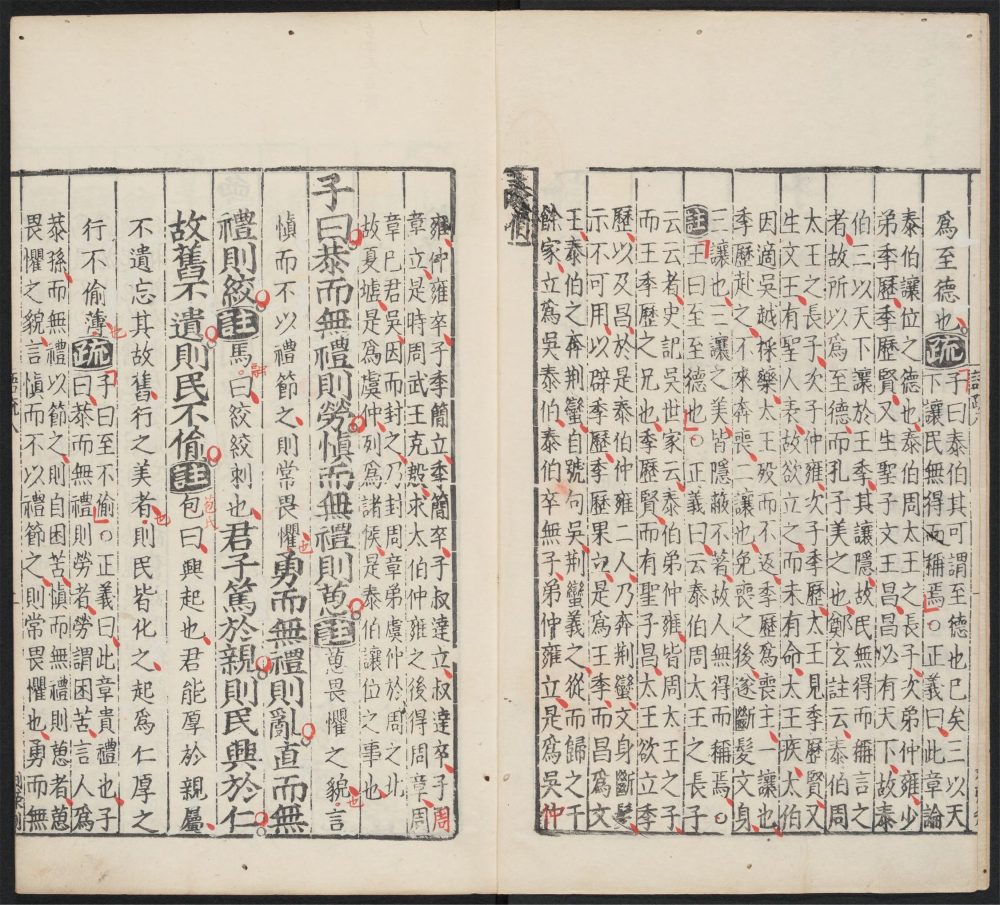 為至德也疏子曰泰伯其可謂至德也已矣三以天
下讓民無得而稱焉○正義曰此章論
泰伯讓位之德也泰伯周太王之長子次弟仲雍少
弟季歷季歷賢又生聖子文王昌昌必有天下故泰
伯三以天下讓於王季其讓隱故民無得而稱言之
者故所以為至德而孔子美之也鄭玄註云泰伯周
太王之長子次子仲雍次子季歷太王見季歷賢又
生文王有聖人表故欲立之而未有命太王疾太伯
因適吳越採藥太王歿而不返季歷為喪主一讓也
季歷赴之不來奔喪二讓也免喪之後遂斷髮文身
三讓也三讓之美皆隱蔽不著故人無得而稱焉○
註王曰至至德也○正義曰云泰伯周太王之長子
云云者史記吳世家云泰伯弟仲雍皆周太王之子
而王季歷之兄也季歷賢而有聖子昌太王欲立季
歷以及昌於是泰伯仲雍二人乃奔荆蠻文身斷髮
示不可用以辟季歷季歷果立是為王季而昌為文
王泰伯之奔荆蠻自號句吳荆蠻義之從而歸之千
餘家立為吳泰伯泰伯卒無子弟仲雍立是為吳仲
雍仲雍卒子季簡立季簡卒子叔達立叔達卒子周
章立是時周武王克殷求太伯仲雍之後得周章周
章已君吳因而封之乃封周章弟虞仲於周之北
故夏墟是為虞仲列為諸候是泰伯讓位之事也
子曰恭而無禮則勞慎而無禮則葸註葸畏懼之貌也言
慎而不以禮節之則常畏懼也勇而無禮則亂直而無
禮則絞註馬融曰絞絞刺也君子篤於親則民興於仁
故舊不遺則民不偷註包氏包曰興起也君能厚於親屬
不遺忘其故舊行之美者也則民皆化之起為仁厚之
行不偷薄也疏子曰至不偷○正義曰此章貴禮也子
曰恭而無禮則勞者勞謂困苦言人為
恭孫而無禮以節之則自困苦慎而無禮則葸者葸
畏懼之貌言慎而不以禮節之則常畏懼也勇而無